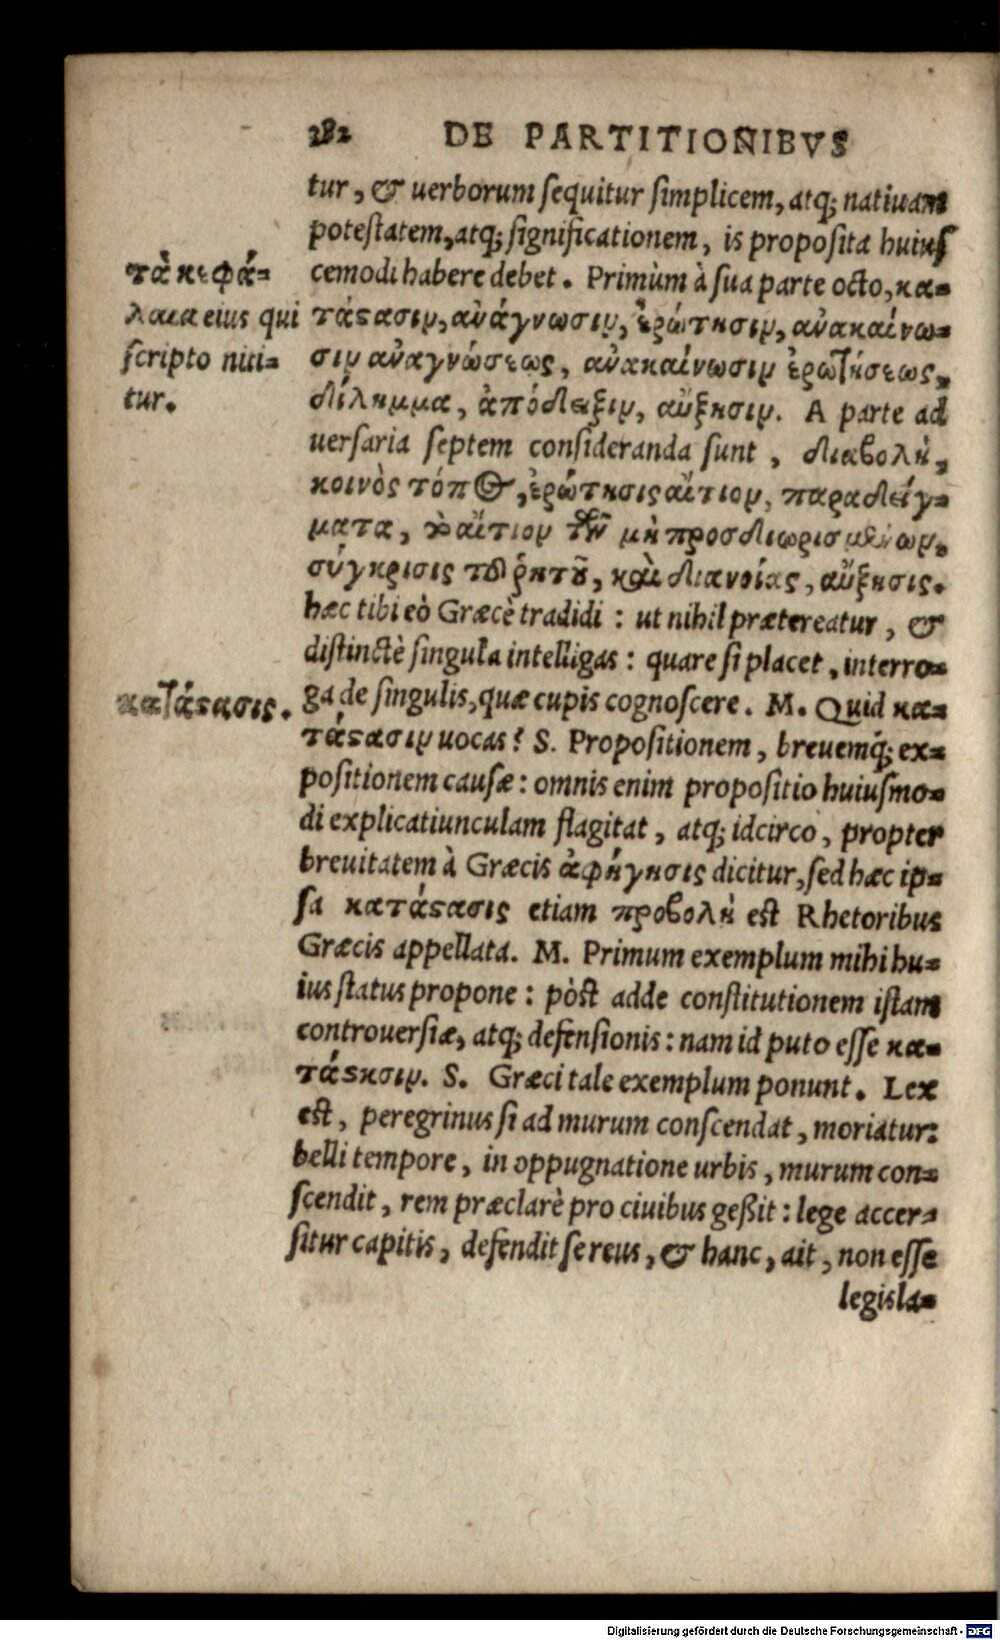 282 DE PARTITIONIBVS
tur, & uerborum sequitur simplicem, atq; natiuam
potestatem, atq; significationem, is proposita huius
cemodi habere debet. Primùm à sua parte octo, κα-
τάςασιν, ἀνάγνωσιν, ἐρώτησιν, ἀνακαίνω-
σιν ἀναγνώσεως, ἀνακαίνωσιν ἐρωτήσεως,
δίλημμα, ἀπόδειξιν, αὔξησιν. A parte ad
uersaria septem consideranda sunt, διαβολὴ,
κοινὸς τόπος, ἐρώτησις αἴτιον, παραδείγ-
ματα, τὸ αἴτιον τῶν μὴ προσδιωρισμένων,
σύγκρισις τοῦ ῥητοῦ, καὶ διανοίας, αὔξησις.
hæc tibi eò Græcè tradidi: ut nihil prætereatur, &
distinctè singula intelligas: quare si placet, interro-
ga de singulis, quæ cupis cognoscere. M. Quid κα-
τάςασιν uocas? S. Propositionem, breuemq́; ex-
positionem causæ: omnis enim propositio huiusmo-
di explicatiunculam flagitat, atq; idcirco, propter
breuitatem à Græcis ἀφήγησις dicitur, sed hæc ip-
sa κατάςασις etiam προβολὴ est Rhetoribus
Græcis appellata. M. Primum exemplum mihi hu-
ius status propone: pòst adde constitutionem istam
controuersiæ, atq; defensionis: nam id puto esse κα-
τάςησιν. S. Græci tale exemplum ponunt. Lex
est, peregrinus si ad murum conscendat, moriatur:
belli tempore, in oppugnatione urbis, murum con-
scendit, rem præclarè pro ciuibus geßit: lege accer-
situr capitis, defendit se reus, & hanc, ait, non esse
legisla-
τὰ κεφά-
λαια eius qui
scripto niti-
tur.
κατάςασις.
Digitalisierung gefördert durch die Deutsche Forschungsgemeinschaft - DFG